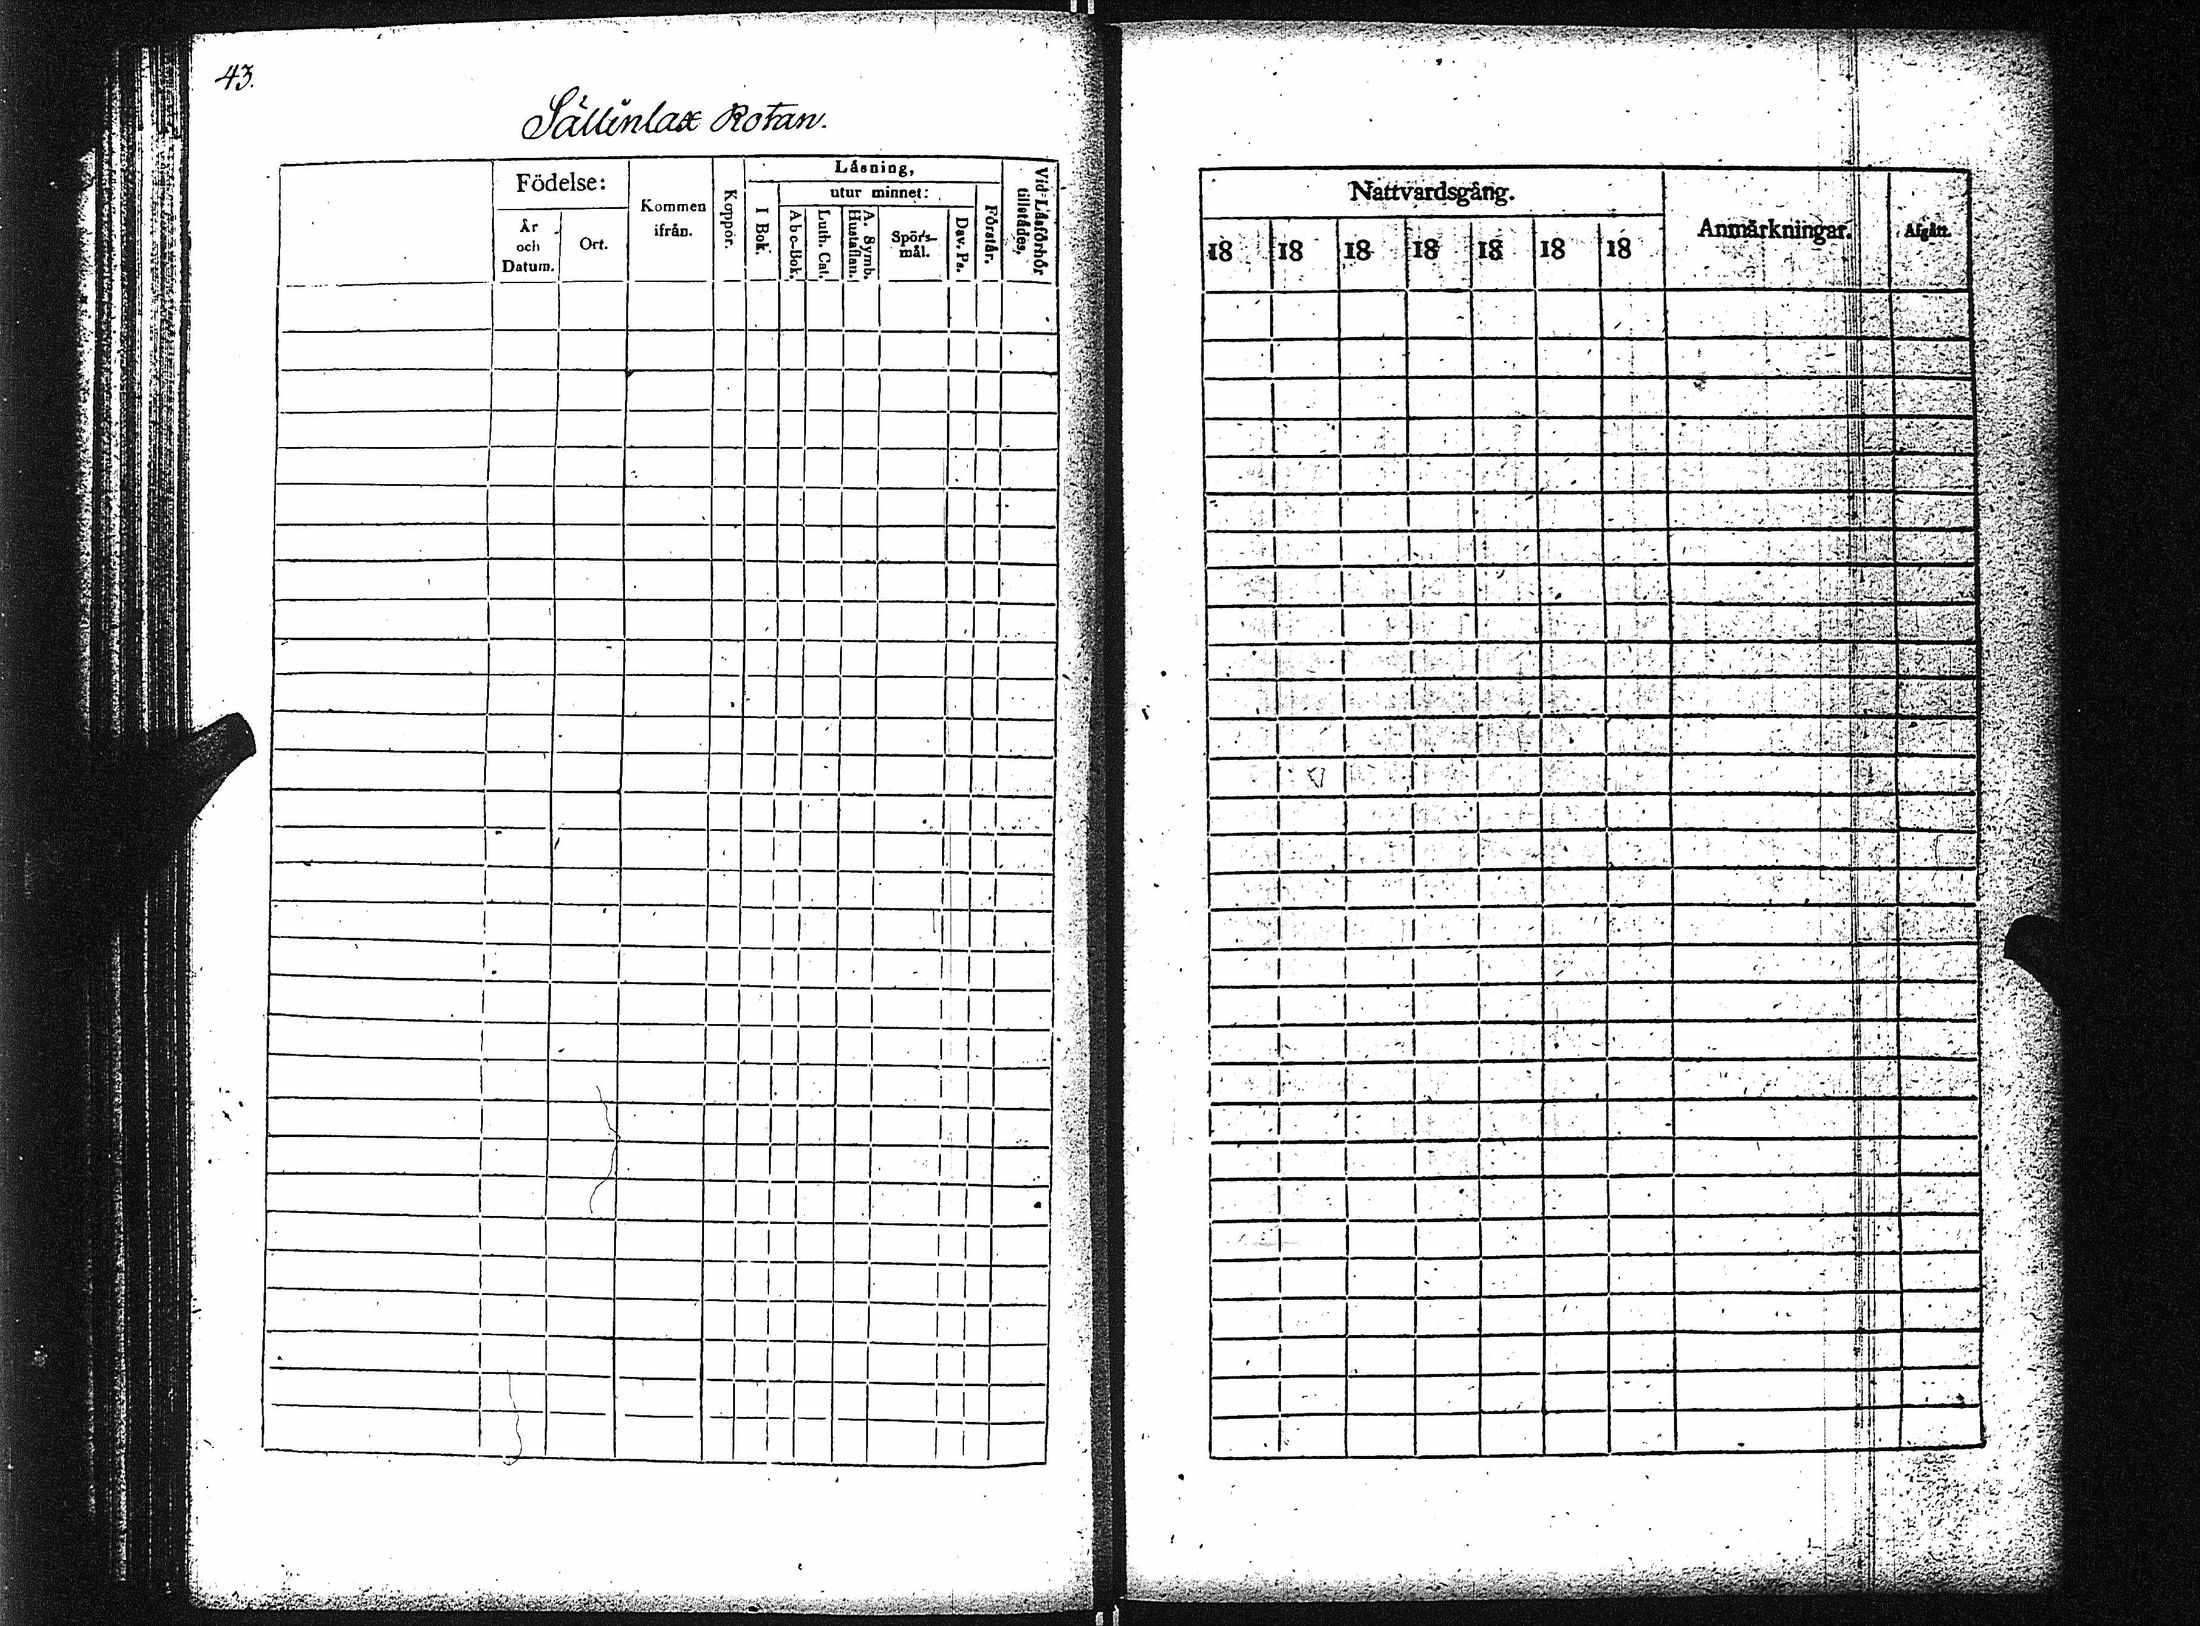 43.
Sällinlax Rotan.
Födelse:
År och Datum.
Ort.
Kommen ifrån.
Koppor.
Låsning,
I Bok.
utur minnet:
Abc-Bok.
Luth. Cat.
A. Symb. Hustaflan.
Spörs-
mål.
Dav. Ps.
Förstår.
Vid Låsförhör tillstådes.
Nattvardsgång.
18 18 18 18 18 18 18
Anmårkningar.
Afgått.